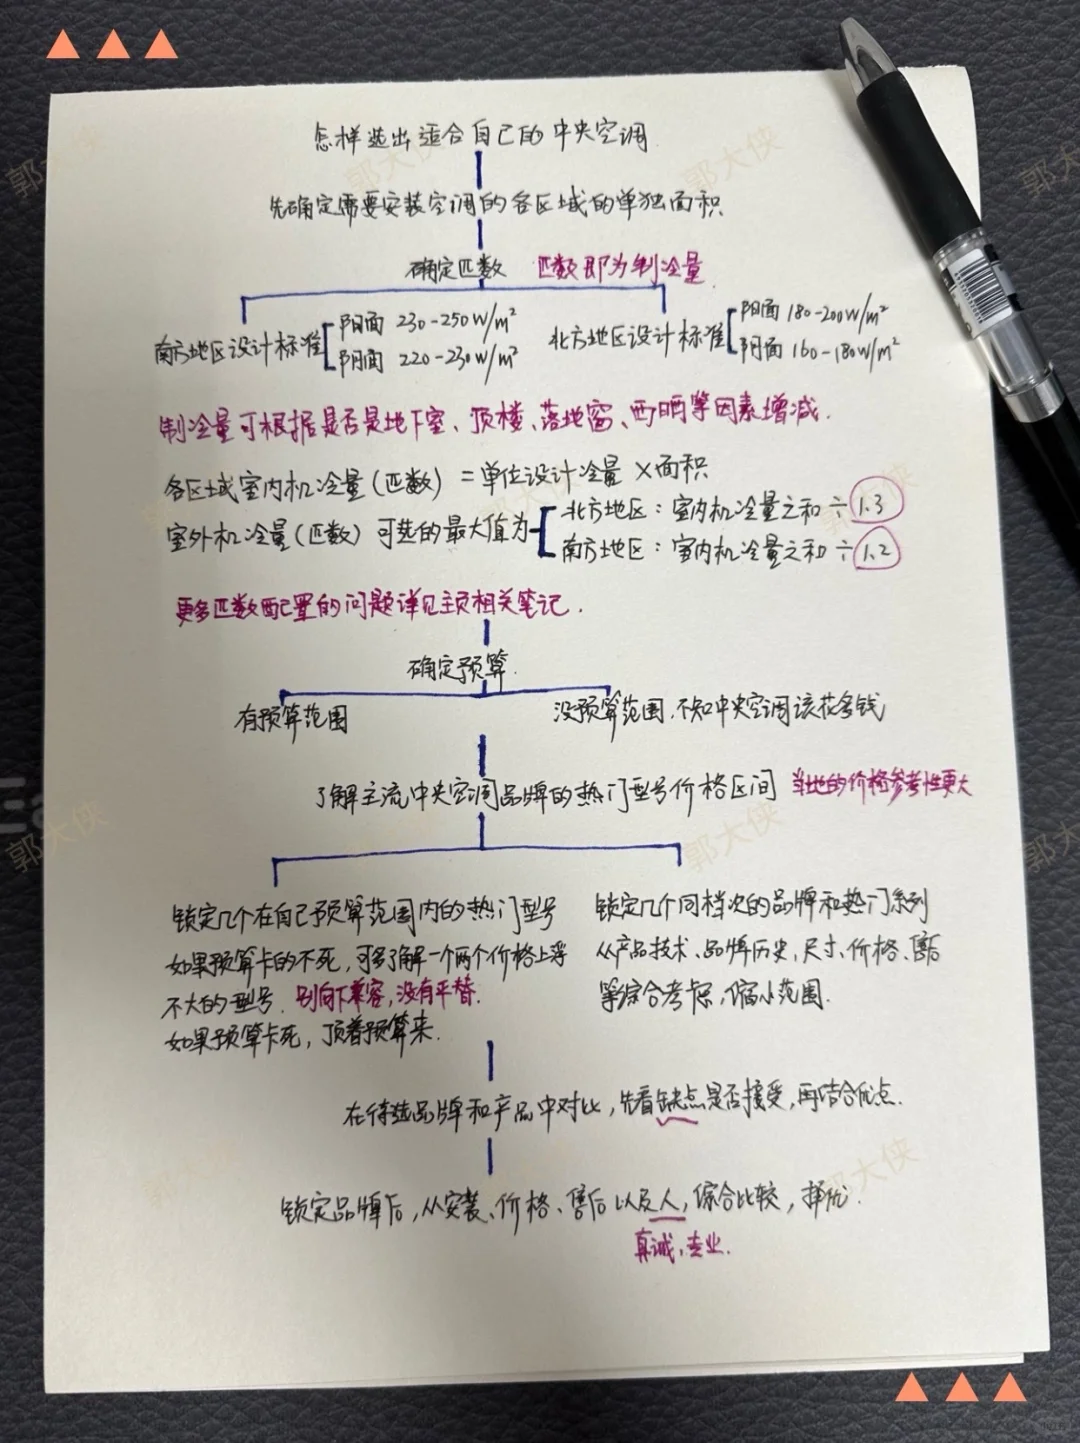 怎样选出适合自己的中央空调
先确定需要安装空调的各区域的单独面积
确定匹数 匹数即为制冷量
南方地区设计标准
阳面 230-250W/m²
阴面 220-230W/m²
北方地区设计标准
阳面 180-200W/m²
阴面 160-180W/m²
制冷量可根据是否是地下室、顶楼、落地窗、西晒等因素增减.
各区域室内机冷量(匹数) = 单位设计冷量 × 面积
室外机冷量(匹数) 可选的最大值为
北方地区: 室内机冷量之和 ÷ 1.3
南方地区: 室内机冷量之和 ÷ 1.2
更多匹数配置的问题详见主页相关笔记.
确定预算.
有预算范围
没预算范围,不知中央空调该花多钱
了解主流中央空调品牌的热门型号价格区间 当地的价格参考性更大
锁定几个在自己予预算范围内的热门型号
如果预算卡的不死,可多了解一个两个价格上浮
不大的型号. 别向下兼容,没有平替.
如果预算卡死,顶着预算来.
锁定几个同档次的品牌和热门系列
从产品技术、品牌历史,尺寸、价格、售后
等综合考虑,缩小范围.
在待选品牌和产品中对比,先看缺点是否接受,再结合优点.
锁定品牌后,从安装、价格、售后以及人,综合比较,择优.
真诚,专业.
郭大侠
郭大侠
郭大侠
郭大侠
郭大侠
郭大侠
郭大侠
郭大侠